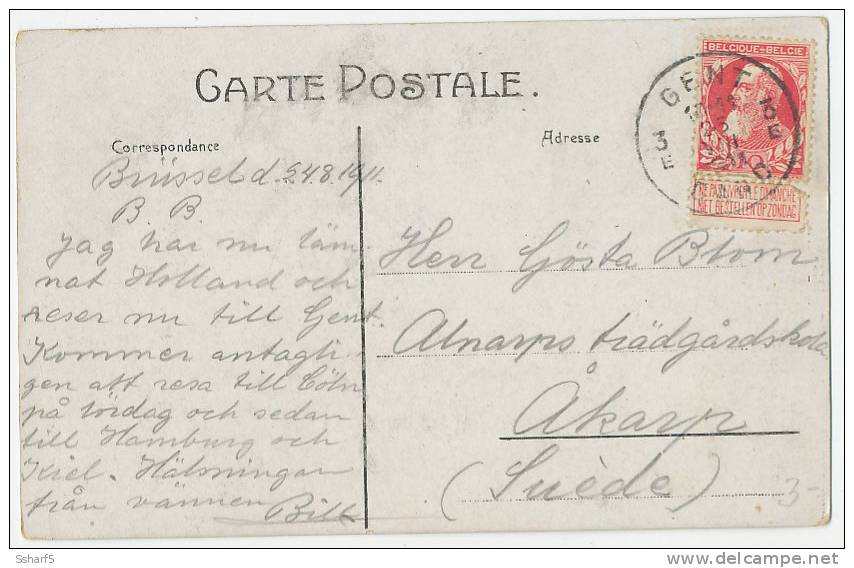 CARTE POSTALE.
Correspondance
Adresse
BELGIQUE-BELGIË
GENT
3
E
10
NE PAS LIVRER LE DIMANCHE
NIET BESTELLEN OP ZONDAG
Brüssel d. 24 8. 1911.
B. B.
Jag har nu läm-
nat Holland och
reser nu till Gent.
Kommer antagli-
gen att resa till Cöln
på lördag och sedan
till Hamburg och
Kiel. Hälsningar
från vännen
Herr Gösta Blom
Alnarps trädgårdskola
Åkarp
(Suède)
3-
Ssharf5
www.delcampe.net